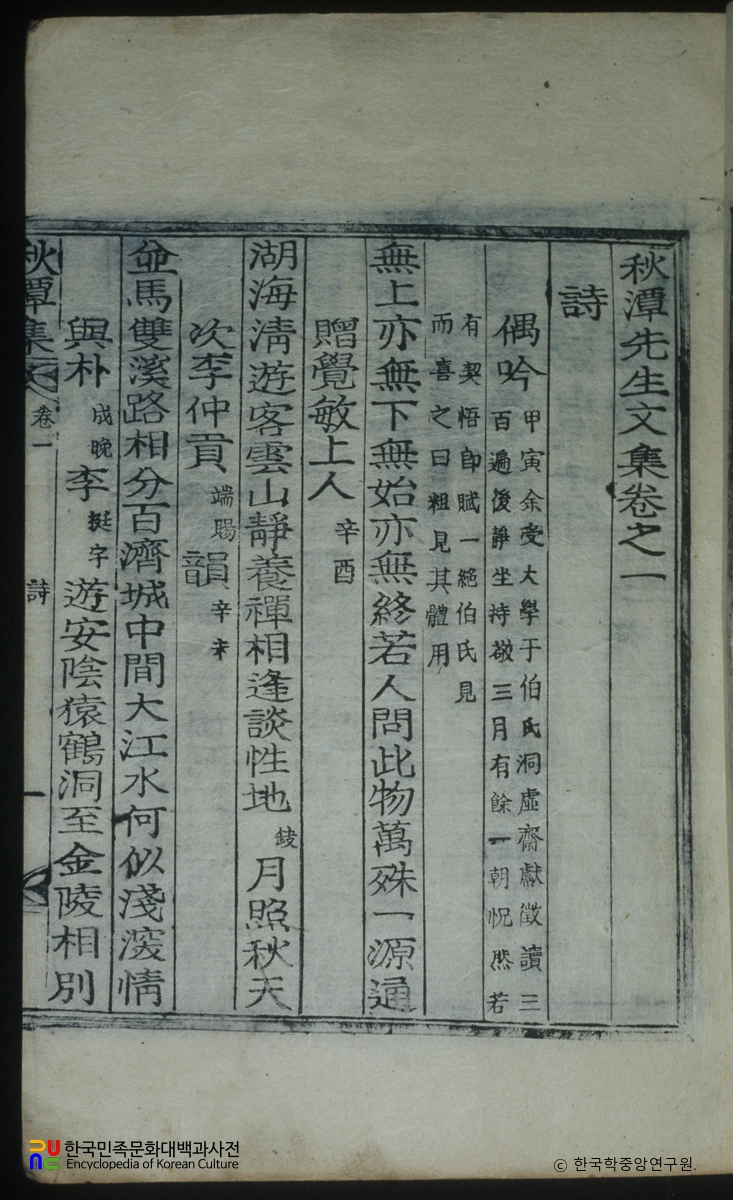 秋潭先生文集卷之一
詩
偶吟 甲寅余受大學于伯氏洞虛齋獻徵讀三
百遍後靜坐持敬三月有餘一朝怳然若
有契悟卽賦一絶伯氏見
而喜之曰粗見其體用
無上亦無下無始亦無終若人問此物萬殊一源通
贈覺敏上人 辛酉
湖海淸遊客雲山靜養禪相逢談性地 月照秋天
次李仲貢 端賜 韻 辛未
並馬雙溪路相分百濟城中間大江水何似淺深情
與朴 成晩 李 挺字 遊安陰猿鶴洞至金陵相別
秋潭集 卷一 詩 一
한국민족문화대백과사전
Encyclopedia of Korean Culture
© 한국학중앙연구원.